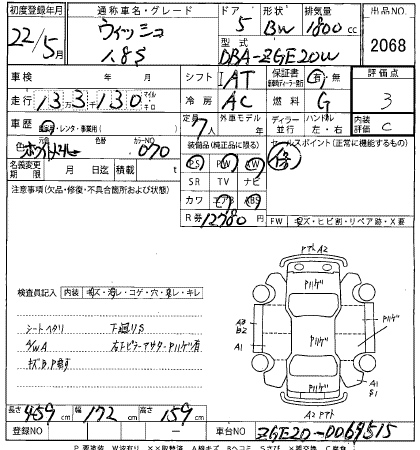 初度登録年月 通称車名・グレード ドア 形状 排気量 出品NO
22/5月 ウィッシュ 5 BW 1800 cc
1.8S 型式 2068
DBA-ZGE20W
車検 年 月 シフト IAT 保証書 有・無 評価点
走行 133千130 マイル キロ 冷房 AC 燃料 G 3
車歴 自家用・レンタ・事業用( ) 定員 7人 外車モデル 年 ディーラー 並行 ハンドル 左・右 内装評価 C
色 元色 ホワイトパール 色替 カラーNO 070 装備品(純正品に限る) セールスポイント(正常に機能するもの)
PS PW SW 修
名義変更期限 月 日迄 積載 t SR TV ナビ
注意事項(欠品・修復・不具合箇所および状態) カワ エアB ABS
R券 12780 FW キズ・ヒビ割・リペア跡・X要
アト A2
検査員記入 内装 キズ・汚レ・コゲ・穴・臭レ・キレ
シートヘタリ 下廻りS
A/WA
A3
B2
A1 A1
A1
S1
A2 アト
長さ 459cm 幅 172cm 高さ 159cm
登録NO — 車台NO ZGE20-0069515